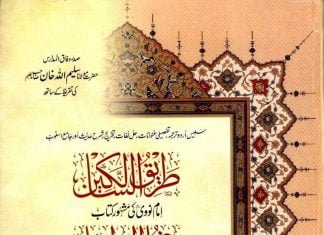 صدر وفاق المدارس
حضرت مولانا سلیم اللہ خان
کی تقریظ کے ساتھ
سلیس اردو ترجمہ تفصیلی عنوانات، حل لغات، تخریج شرح حدیث اور جامع اسلوب
طریق السالکین
امام نووی کی مشہور کتاب